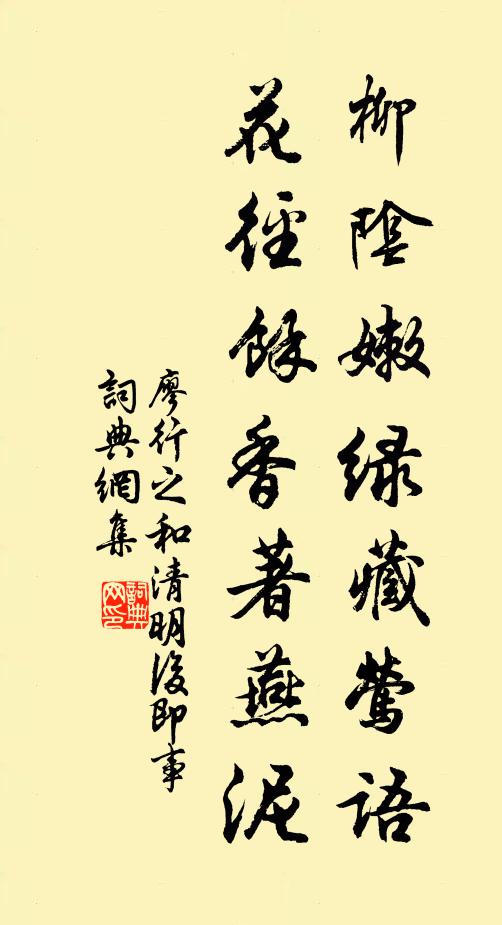 柳陰嫩緑藏鶯語
花徑餘香著燕泥
廖行之和清明後即事
詞典網集
詞典網印